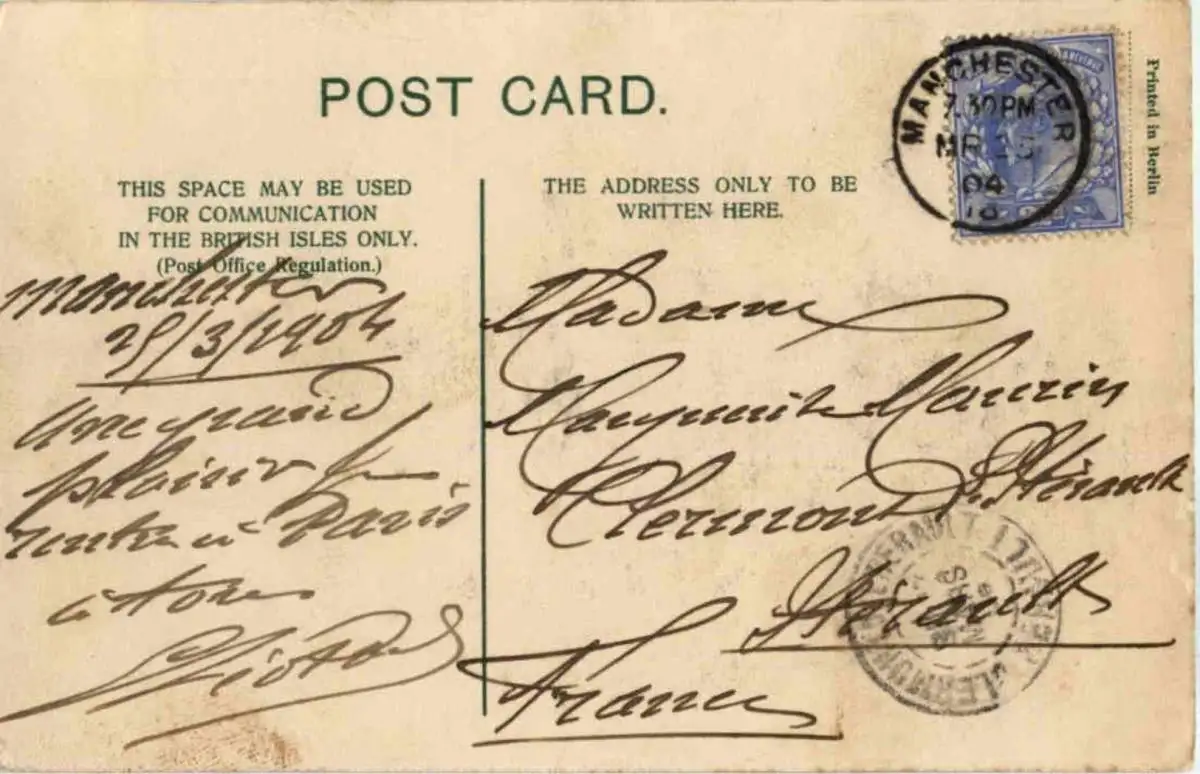 POST CARD.
THIS SPACE MAY BE USED
FOR COMMUNICATION
IN THE BRITISH ISLES ONLY.
(Post Office Regulation.)
THE ADDRESS ONLY TO BE
WRITTEN HERE.
Printed in Berlin
MANCHESTER
7.30 PM
04
Manchester
25/3/1904
Une grand
plaisir
rentre à Paris
Madame
Marguerite Maurin
Clermont L'Hérault
Hérault
France
CLERMONT L'HERAULT